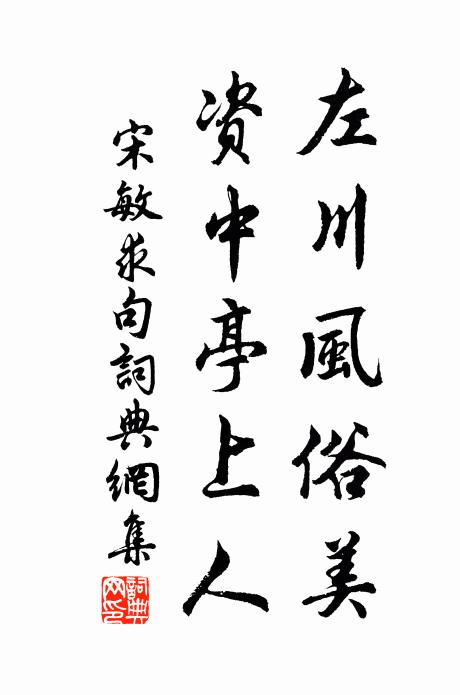 左川風俗美
資中亭上人
宋敏求句詞典網集
詞典網印